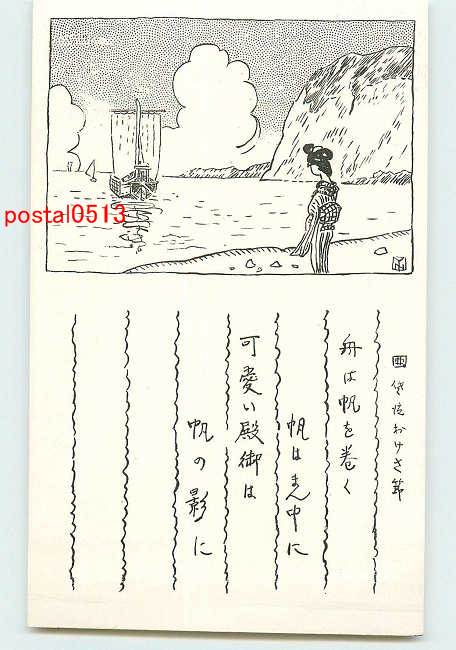 postal0513
佐渡おけさ節
舟は帆を巻く
帆はまん中に
可愛い殿御は
帆の影に